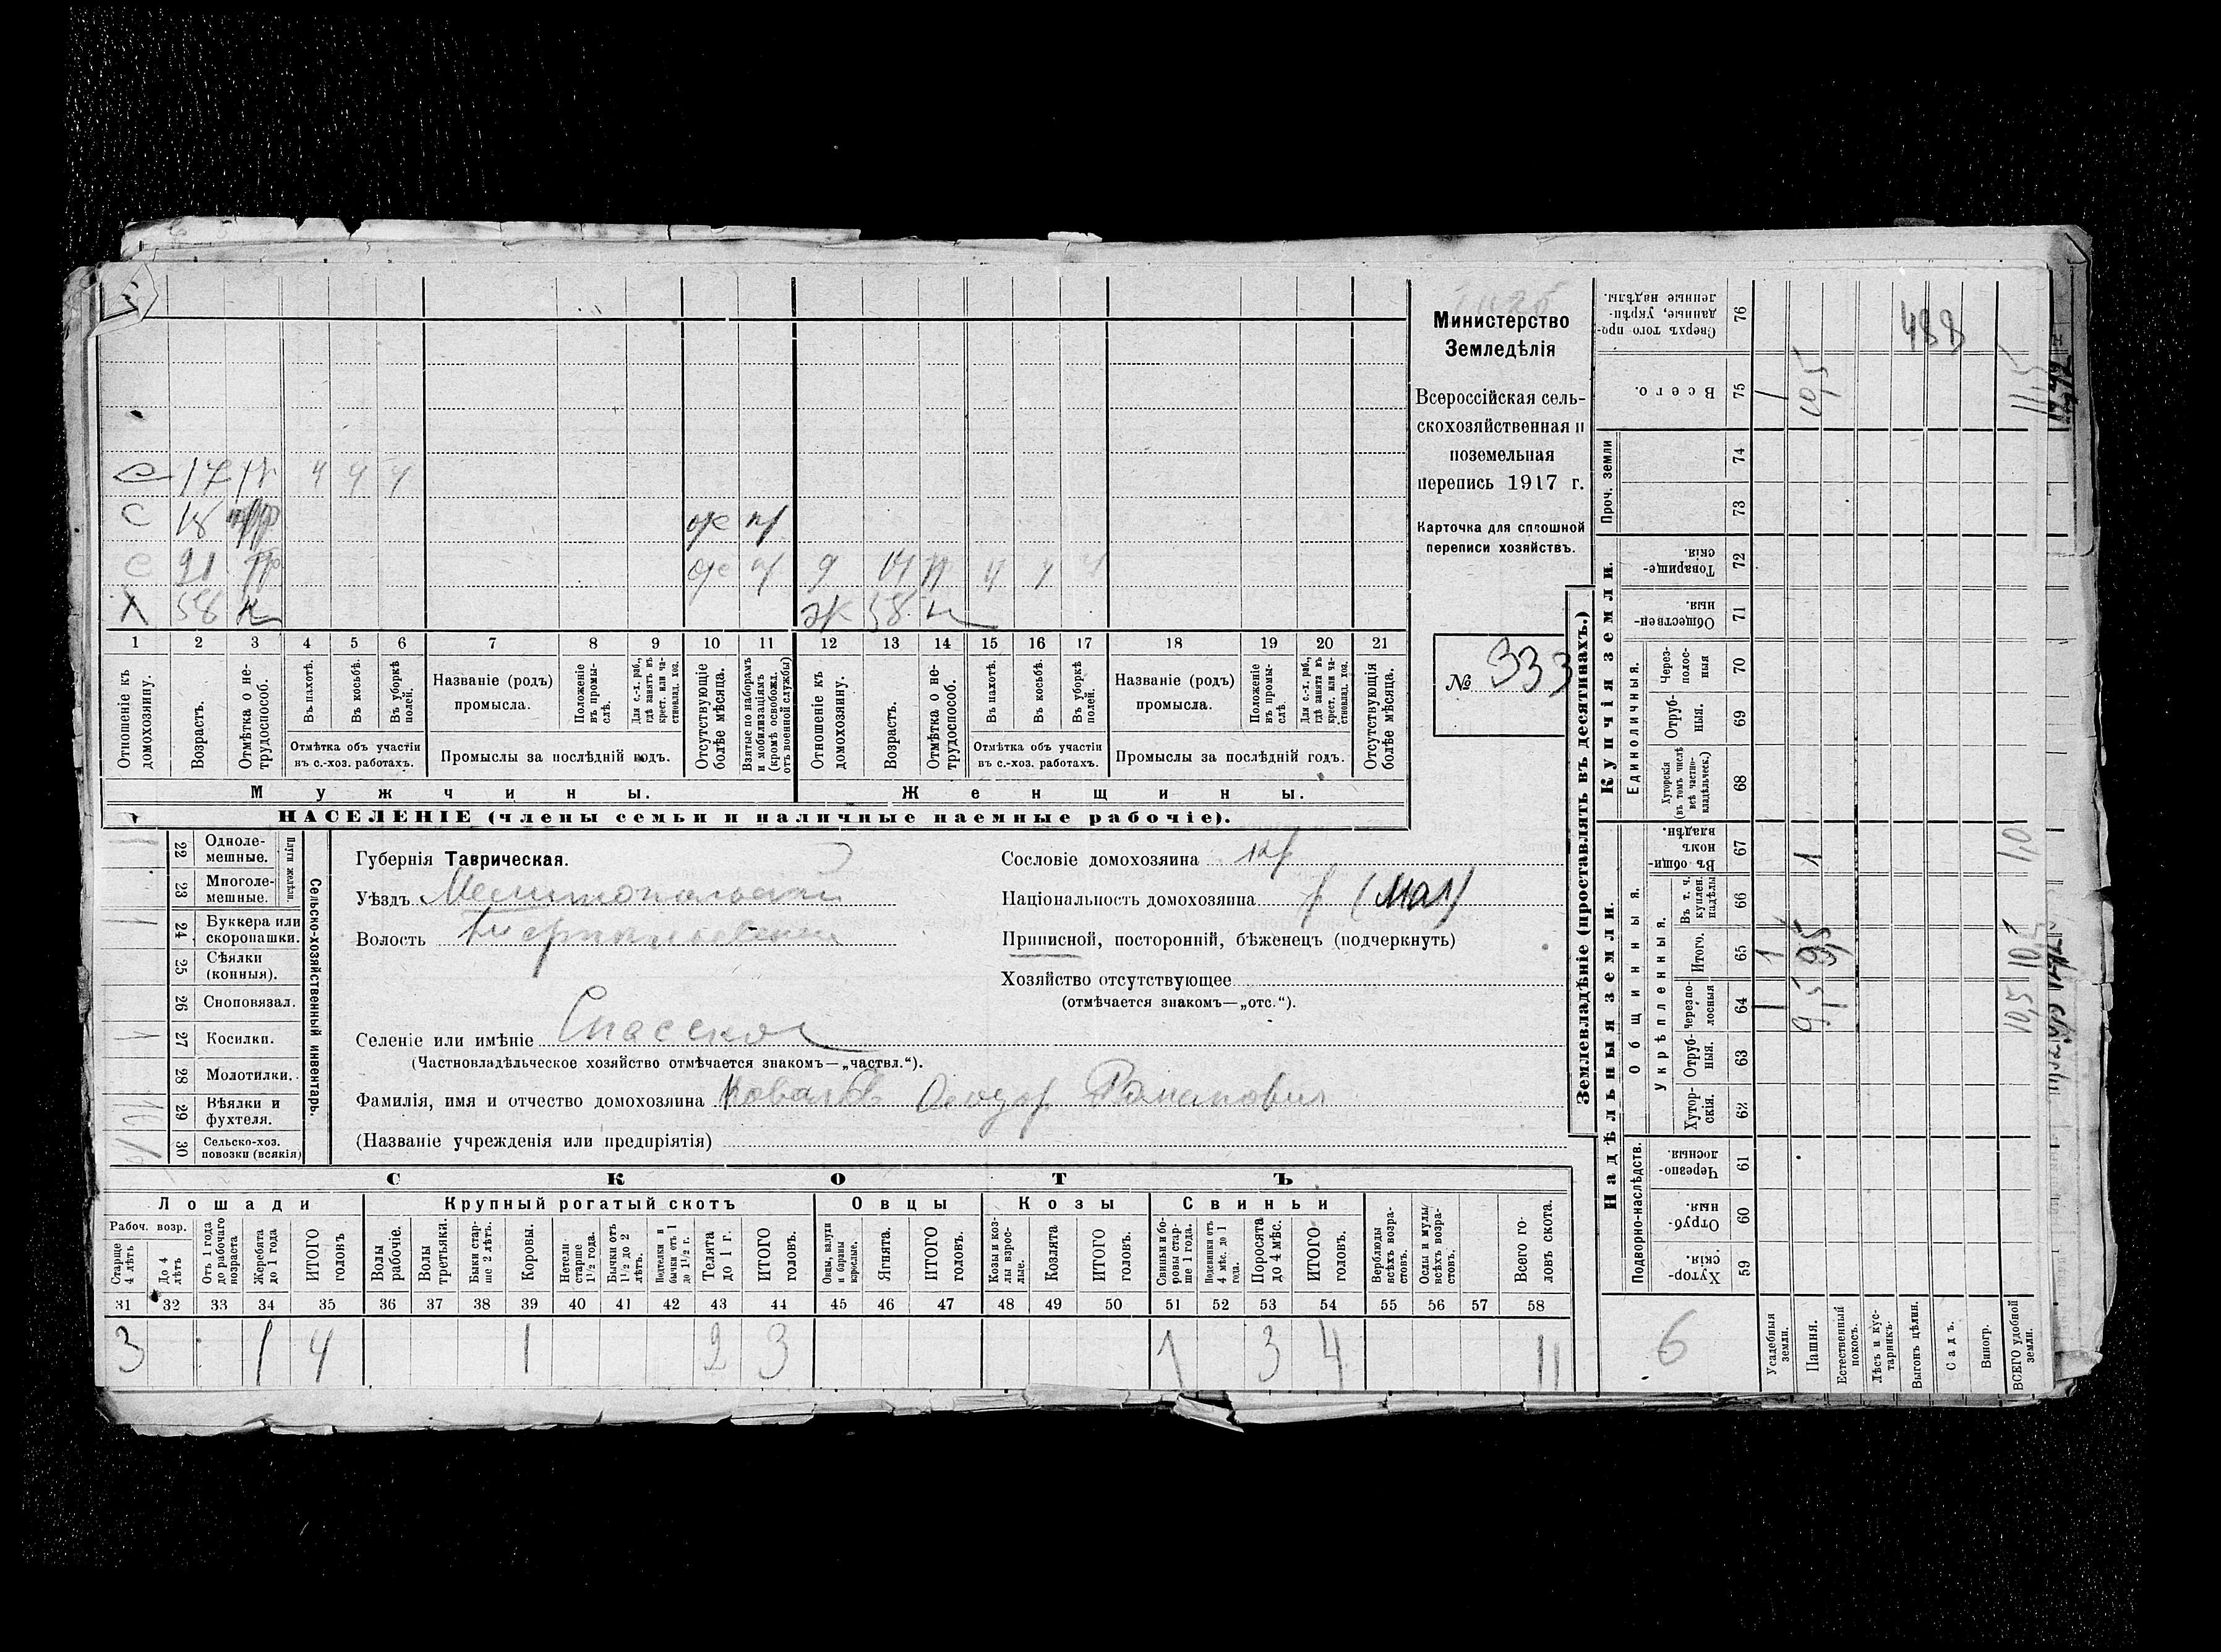 Министерство
Земледѣлія
Всероссійская сель-
скохозяйственная и
поземельная
перепись 1917 г.
Карточка для сплошной
переписи хозяйствъ.
№ 333
С 17 4 4 4
С 18
С 21
Х 58 Ж 58
1 2 3 4 5 6 7 8 9 10 11 12 13 14 15 16 17 18 19 20 21
Отношеніе къ домохозяину.
Возрастъ.
Отмѣтка о не-трудоспособ.
Въ пахотѣ.
Въ косьбѣ.
Въ уборкѣ полей.
Отмѣтка объ участіи
въ с.-хоз. работахъ.
Названіе (родъ)
промысла.
Положеніе въ промы-слѣ.
Для с.-х. раб., гдѣ занятъ въ крест. или ча-стновлад. хоз.
Промыслы за послѣдній годъ.
Отсутствующіе болѣе мѣсяца.
Взятые по наборамъ и мобилизаціямъ (кромѣ освобожд. отъ военной службы)
Отношеніе къ домохозяину.
Возрастъ.
Отмѣтка о не-трудоспособ.
Въ пахотѣ.
Въ косьбѣ.
Въ уборкѣ полей.
Отмѣтка объ участіи
въ с.-хоз. работахъ.
Названіе (родъ)
промысла.
Положеніе въ промы-слѣ.
Для с.-х. раб., гдѣ занята въ крест. или ча-стновлад. хоз.
Промыслы за послѣдній годъ.
Отсутствующія болѣе мѣсяца.
Мужчины. Женщины.
НАСЕЛЕНІЕ (члены семьи и наличные наемные рабочіе).
Сельско-хозяйственный инвентарь.
Плуги желѣзн.
22 Одноле-мешные. 1
23 Многоле-мешные.
24 Буккера или скоропашки. 1
25 Сѣялки (конныя).
26 Сноповязал.
27 Косилки. 1
28 Молотилки.
29 Вѣялки и фухтеля.
30 Сельско-хоз. повозки (всякія)
Губернія Таврическая.
Уѣздъ Мелитопольский
Волость
Селеніе или имѣніе Спасское
(Частновладѣльческое хозяйство отмѣчается знакомъ—„частвл.“).
Фамилія, имя и отчество домохозяина Ковалёвъ Феодор Романович
(Названіе учрежденія или предпріятія)
Сословіе домохозяина кр
Національность домохозяина р (мал)
Приписной, посторонній, бѣженецъ (подчеркнуть)
Хозяйство отсутствующее
(отмѣчается знакомъ—„отс.“).
СКОТЪ
Лошади Крупный рогатый скотъ Овцы Козы Свиньи
Рабоч. возр.
Старше 4 лѣтъ
До 4 лѣтъ
Отъ 1 года до рабочаго возраста
Жеребята до 1 года
ИТОГО головъ
Волы рабочіе.
Волы третьяки.
Быки стар-ше 2 лѣтъ.
Коровы.
Нетели старше 1½ года.
Бычки отъ 1½ до 2 лѣтъ.
Подтелки и бычки отъ 1 до 1½ г.
Телята до 1 г.
ИТОГО головъ.
Овцы, валухи и бараны взрослые.
Ягнята.
ИТОГО головъ.
Козы и коз-лы взрос-лые.
Козлята
ИТОГО головъ.
Свиньи и бо-ровы стар-ше 1 года.
Подсвинки отъ 4 мѣс. до 1 года.
Поросята до 4 мѣс.
ИТОГО головъ.
Верблюды всѣхъ возра-стовъ.
Ослы и мулы всѣхъ возра-стовъ.
Всего го-ловъ скота.
31 32 33 34 35 36 37 38 39 40 41 42 43 44 45 46 47 48 49 50 51 52 53 54 55 56 57 58
3 1 4 1 2 3 1 3 4 11
Землевладѣніе (проставлять въ десятинахъ.)
Надѣльныя земли. Купчія земли. Проч. земли
Подворно-наслѣдств.
Общинныя.
Укрѣпленныя.
Единоличныя.
Хутор-скія. 59
Отруб-ныя. 60
Черезпо-лосныя. 61
Хутор-скія. 62
Отруб-ныя. 63
Черезпо-лосныя 64
Итого. 65
Въ т. ч. куплен. надѣлы 66
Въ общи-номъ владѣн. 67
Хуторскія (въ томъ числѣ всѣ частно-владѣльческ.) 68
Отруб-ныя. 69
Через-полос-ныя 70
Обществен-ныя. 71
Товарище-скія. 72
73
74
Всего. 75
Сверхъ того про-данные, укрѣп-ленные надѣлы. 76
6
Усадебныя земли. 1 1 1
Пашня. 9,5 9,5 1 10,5
Естественный покосъ.
Лѣсъ и кус-тарникъ
Выгонъ цѣлин.
Садъ.
Виногр.
ВСЕГО удобной земли. 10,5 10,5 1,0 11,5
488